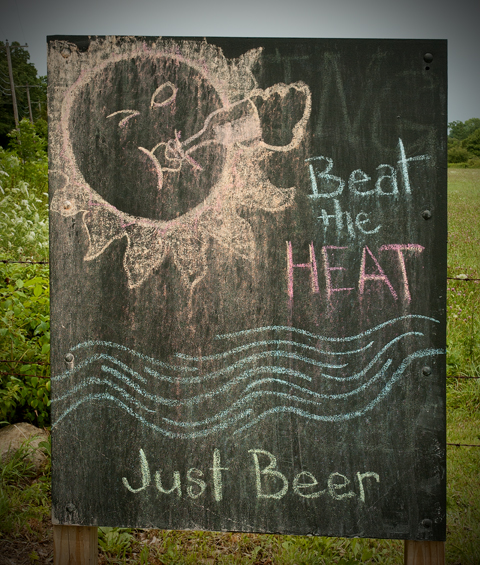 Beat
the
HEAT
Just Beer